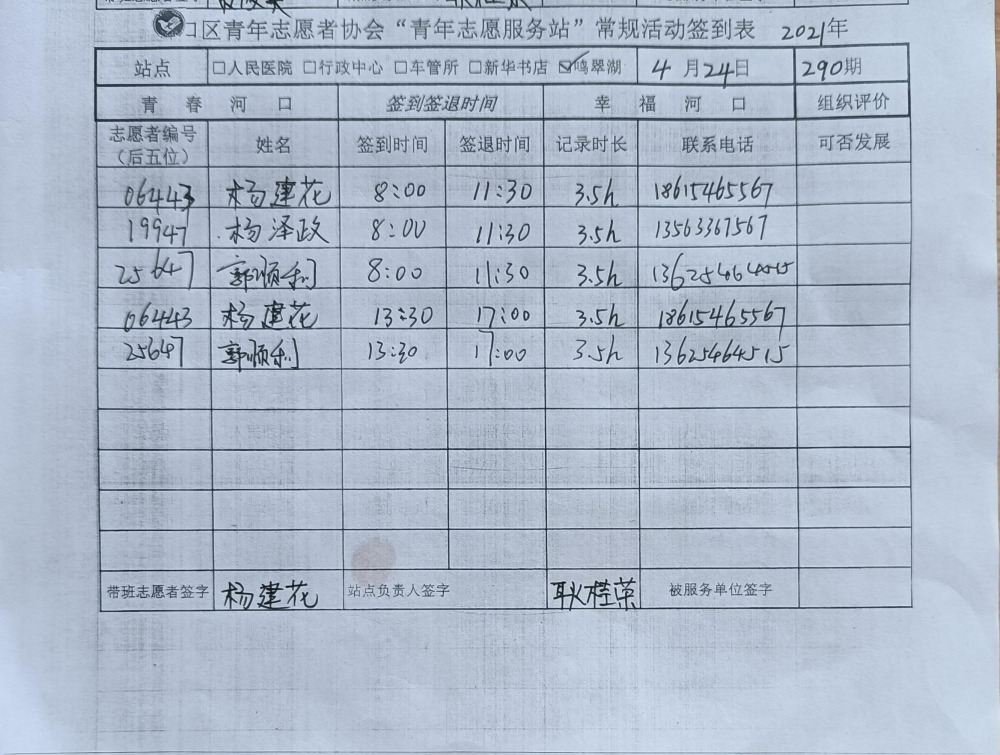 口区青年志愿者协会“青年志愿服务站”常规活动签到表 2021年
站点 □人民医院 □行政中心 □车管所 □新华书店 ☑鸣翠湖 4月24日 290期
青春河口 签到签退时间 幸福河口 组织评价
志愿者编号（后五位） 姓名 签到时间 签退时间 记录时长 联系电话 可否发展
06443 杨建花 8:00 11:30 3.5h 18615465567
19947 杨泽政 8:00 11:30 3.5h 13563367567
25647 郭顺利 8:00 11:30 3.5h
06443 杨建花 13:30 17:00 3.5h 18615465567
25647 郭顺利 13:30 17:00 3.5h 13625464515
带班志愿者签字 杨建花 站点负责人签字 耿桂荣 被服务单位签字